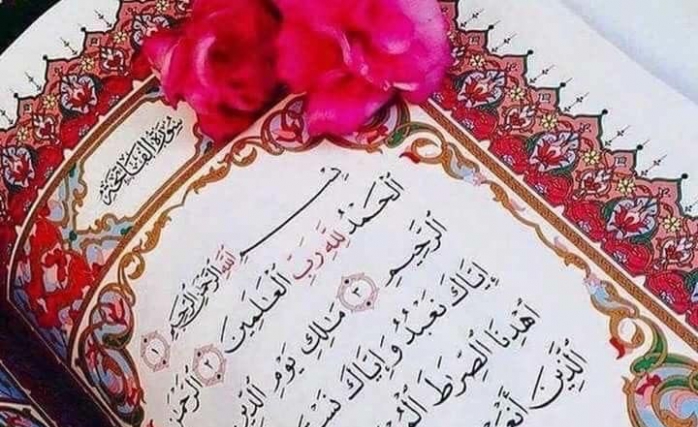 سورة الفاتحة
بِسْمِ اللَّهِ الرَّحْمَنِ الرَّحِيمِ ١
الْحَمْدُ لِلَّهِ رَبِّ الْعَلَمِينَ ٢
الرَّحِيمِ ٣ مَلِكِ يَوْمِ الدِّينِ
إِيَّاكَ نَعْبُدُ وَإِيَّاكَ
اهْدِنَا الصِّرَطَ
الَّذِينَ